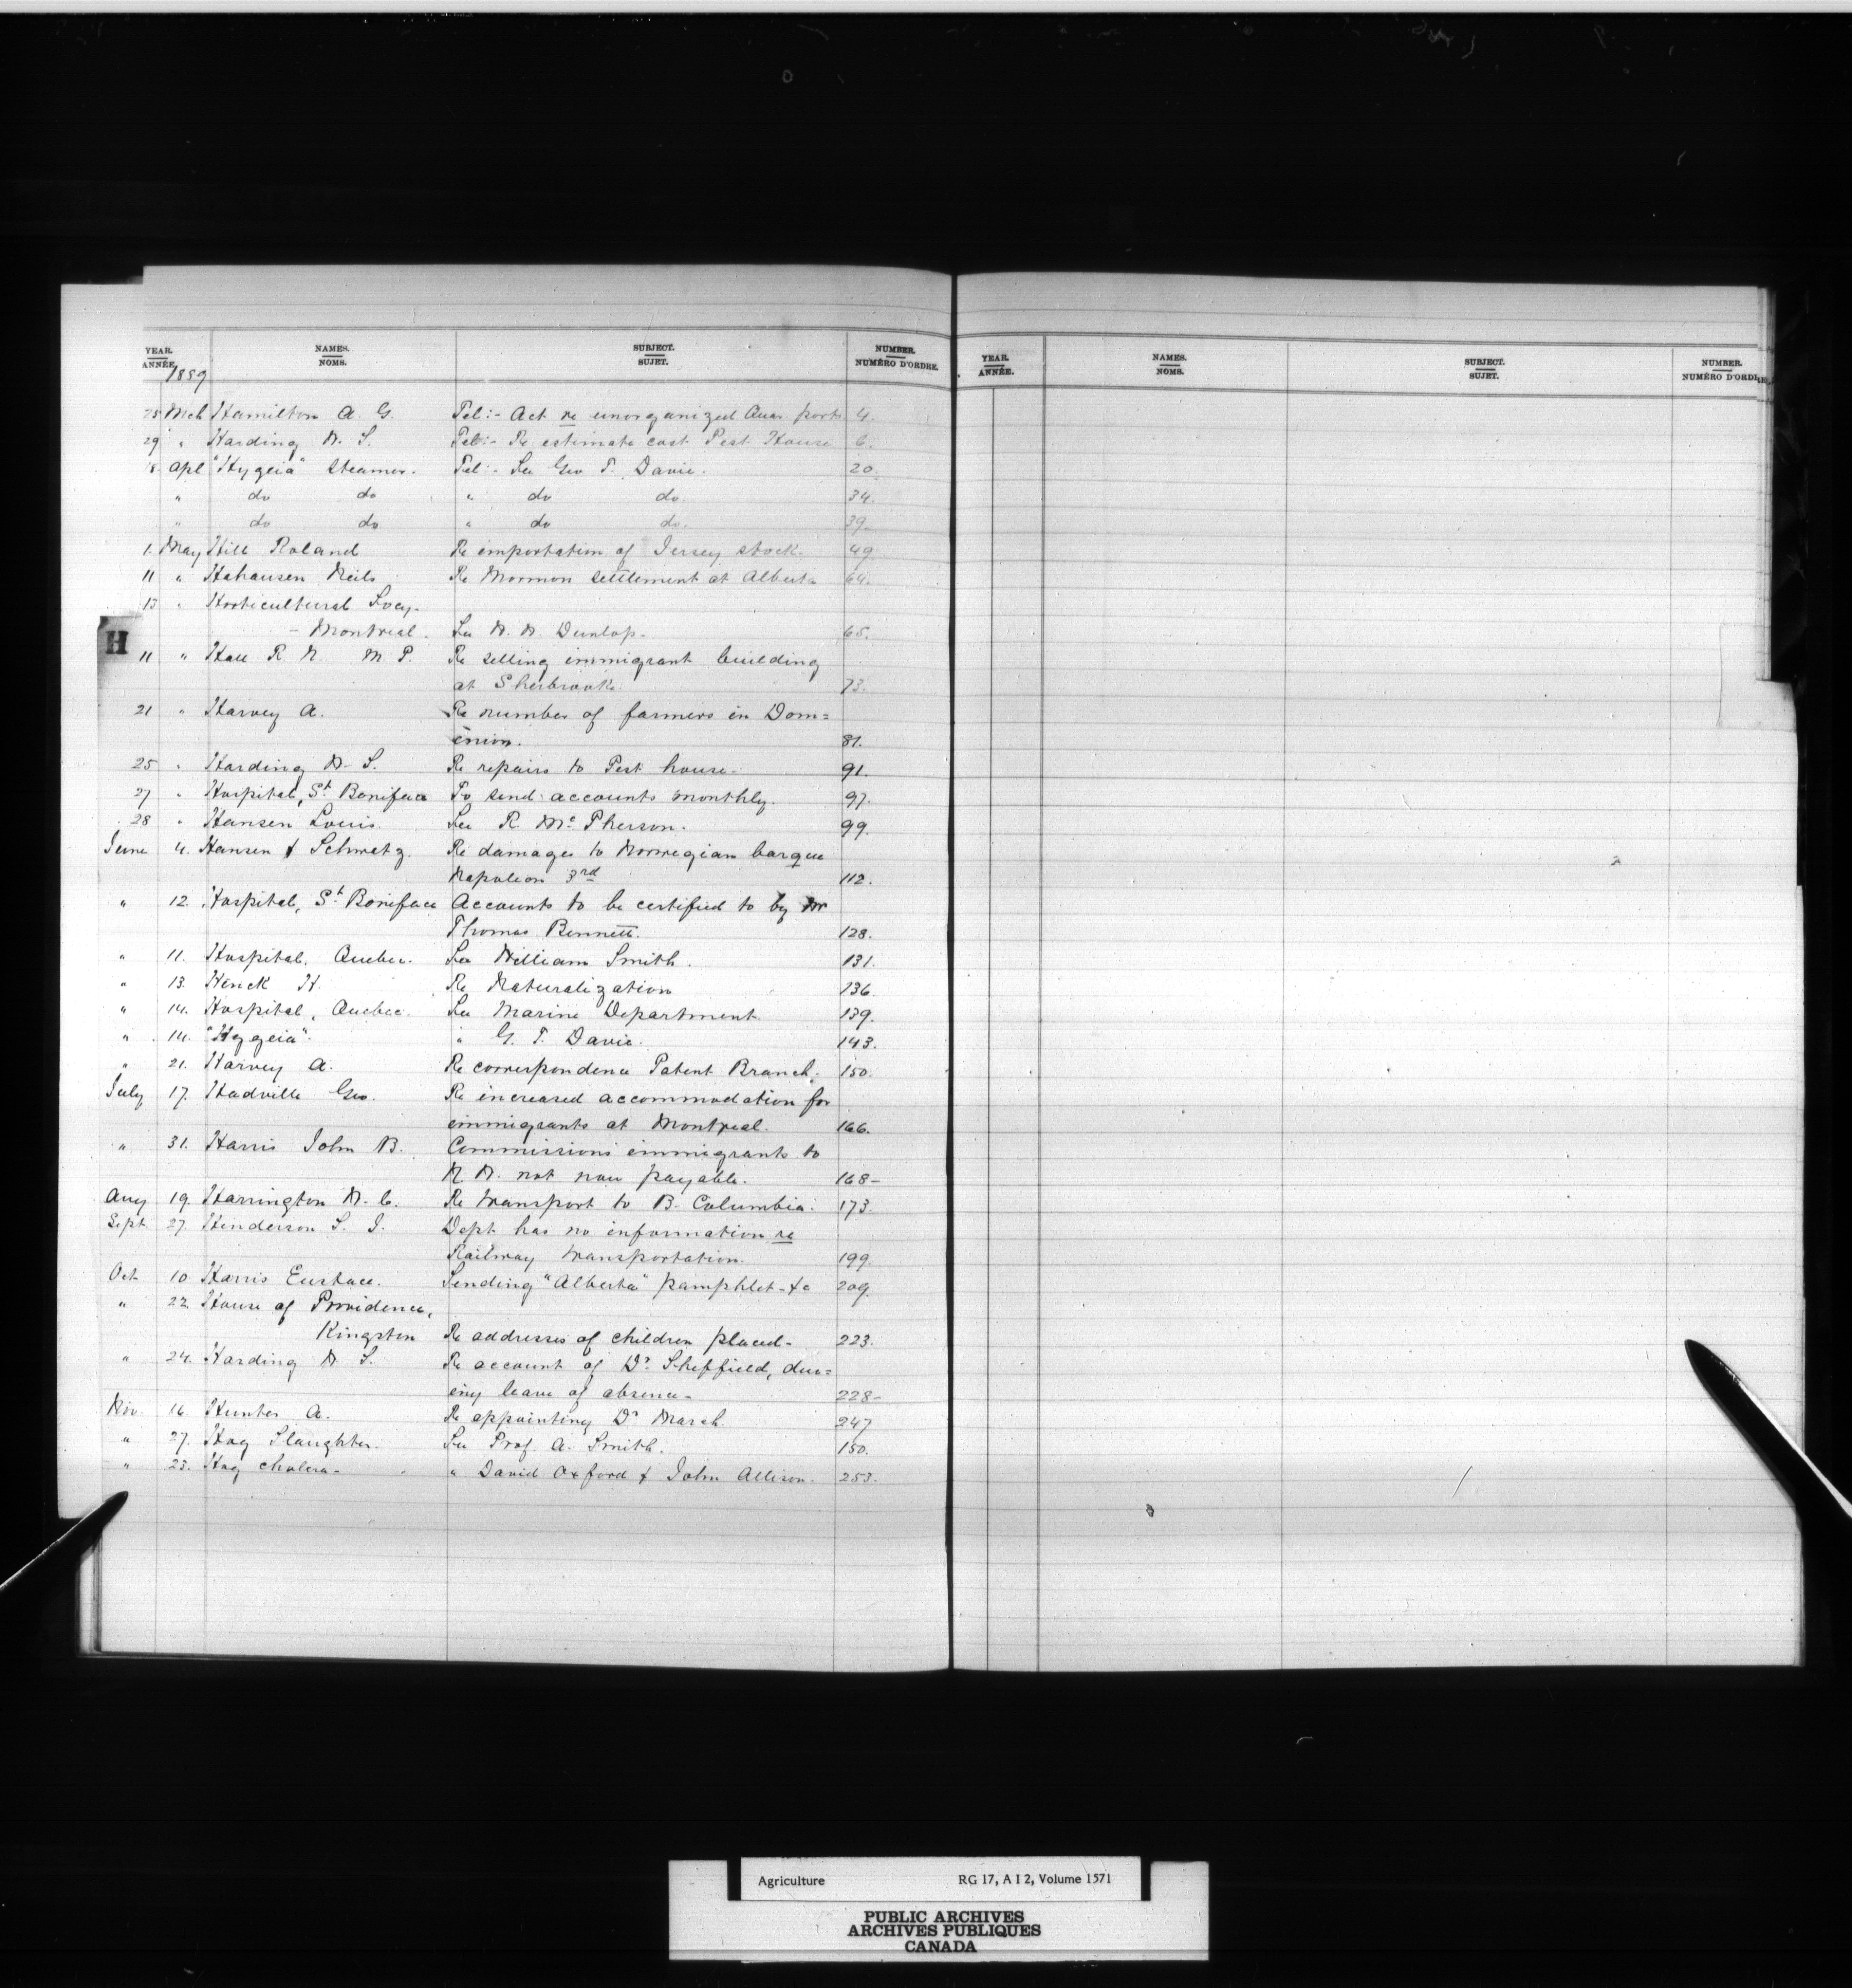 YEAR. NAMES. SUBJECT. NUMBER. YEAR. NAMES. SUBJECT. NUMBER.
ANNÉE. NOMS. SUJET. NUMÉRO D'ORDRE. ANNÉE. NOMS. SUJET. NUMÉRO D'ORDRE
1889
25 Mch Hamilton A. G. Tel:- Act re unorganized Quar. ports 4.
29 " Harding W. S. Tel:- Re estimate cost Pest House 6.
18 Apl "Hygeia" Steamer. Tel:- See Geo T. Davie. 20.
" do do " do do 34.
" do do " do do. 39.
1. May Hill Roland Re importation of Jersey stock. 49
11 " Hahausen Neils Re Mormon settlement at Alberta 64.
13 " Horticultural Socy.
- Montreal. See W. W. Dunlop. 65.
H
11 " Hall R. N. M. P. Re selling immigrant building
at Sherbrooke. 73.
21 " Harvey A. Re number of farmers in Dom=
inion. 81.
25 " Harding W. S. Re repairs to Pest house. 91.
27 " Hospital, St Boniface To send accounts monthly. 97.
28 " Hansen Louis. See R. McPherson. 99.
June 4. Hansen & Schwatz. Re damages to Norwegian barque
Napoleon 3rd 112.
" 12. Hospital, St Boniface Accounts to be certified to by Mr
Thomas Bennett. 128.
" 11. Hospital, Quebec. See William Smith. 131.
" 13. Henck H. Re Naturalization 136.
" 14. Hospital, Quebec. See Marine Department. 139.
" 14. "Hygeia". " G. T. Davie. 143.
" 21. Harvey A. Re correspondence Patent Branch. 150.
July 17. Hadville Geo. Re increased accommodation for
immigrants at Montreal. 166.
" 31. Harris John B. Commissions immigrants to
N. W. not now payable. 168-
Aug 19. Harrington W. C. Re transport to B. Columbia. 173.
Sept. 27. Henderson S. J. Dept. has no information re
Railway transportation. 199.
Oct 10. Harris Eustace. Sending "Alberta" pamphlet &c 209.
" 22. House of Providence,
Kingston Re addresses of children placed. 223.
" 24. Harding W. S. Re account of Dr. Sheffield, dur=
ing leave of absence. 228-
Nov. 16. Hunter A. Re appointing Dr March. 247
" 27. Hog Slaughter. See Prof. A. Smith. 150.
" 23. Hog cholera- " David Oxford & John Allison. 253.
Agriculture RG 17, A I 2, Volume 1571
PUBLIC ARCHIVES
ARCHIVES PUBLIQUES
CANADA